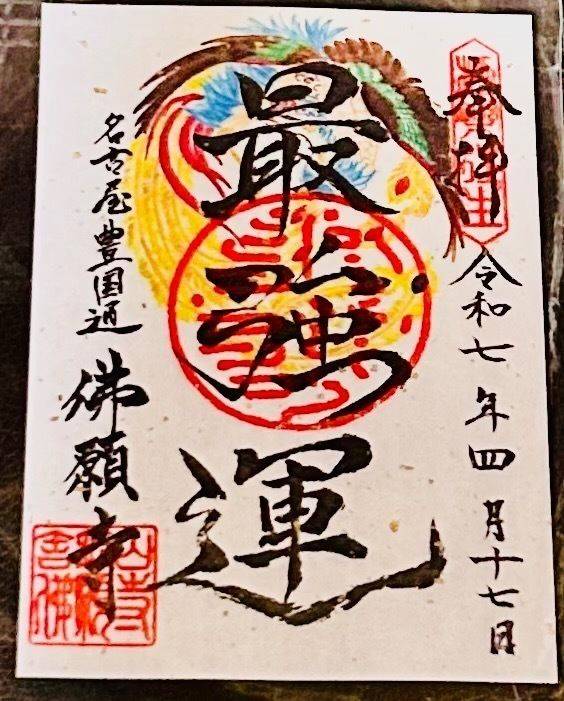 奉拝
令和七年四月十七日
最強運
名古屋豊国通
佛願寺